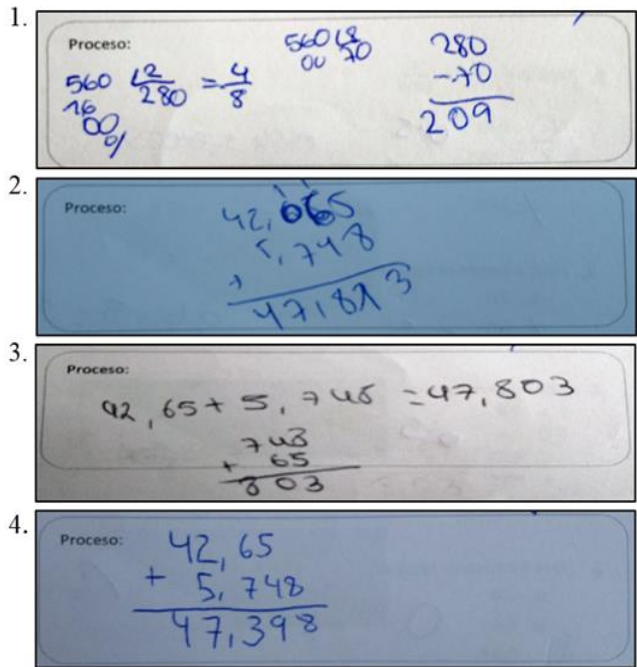 1.
Proceso:
560 |2 280 = 4/8
16
00
0/
560 |8 70
00
280
-70
209
2.
Proceso:
42,665
5,748
+
47,813
3.
Proceso:
42,65 + 5,748 = 47,803
743
+ 65
803
4.
Proceso:
42,65
+ 5,748
47,398